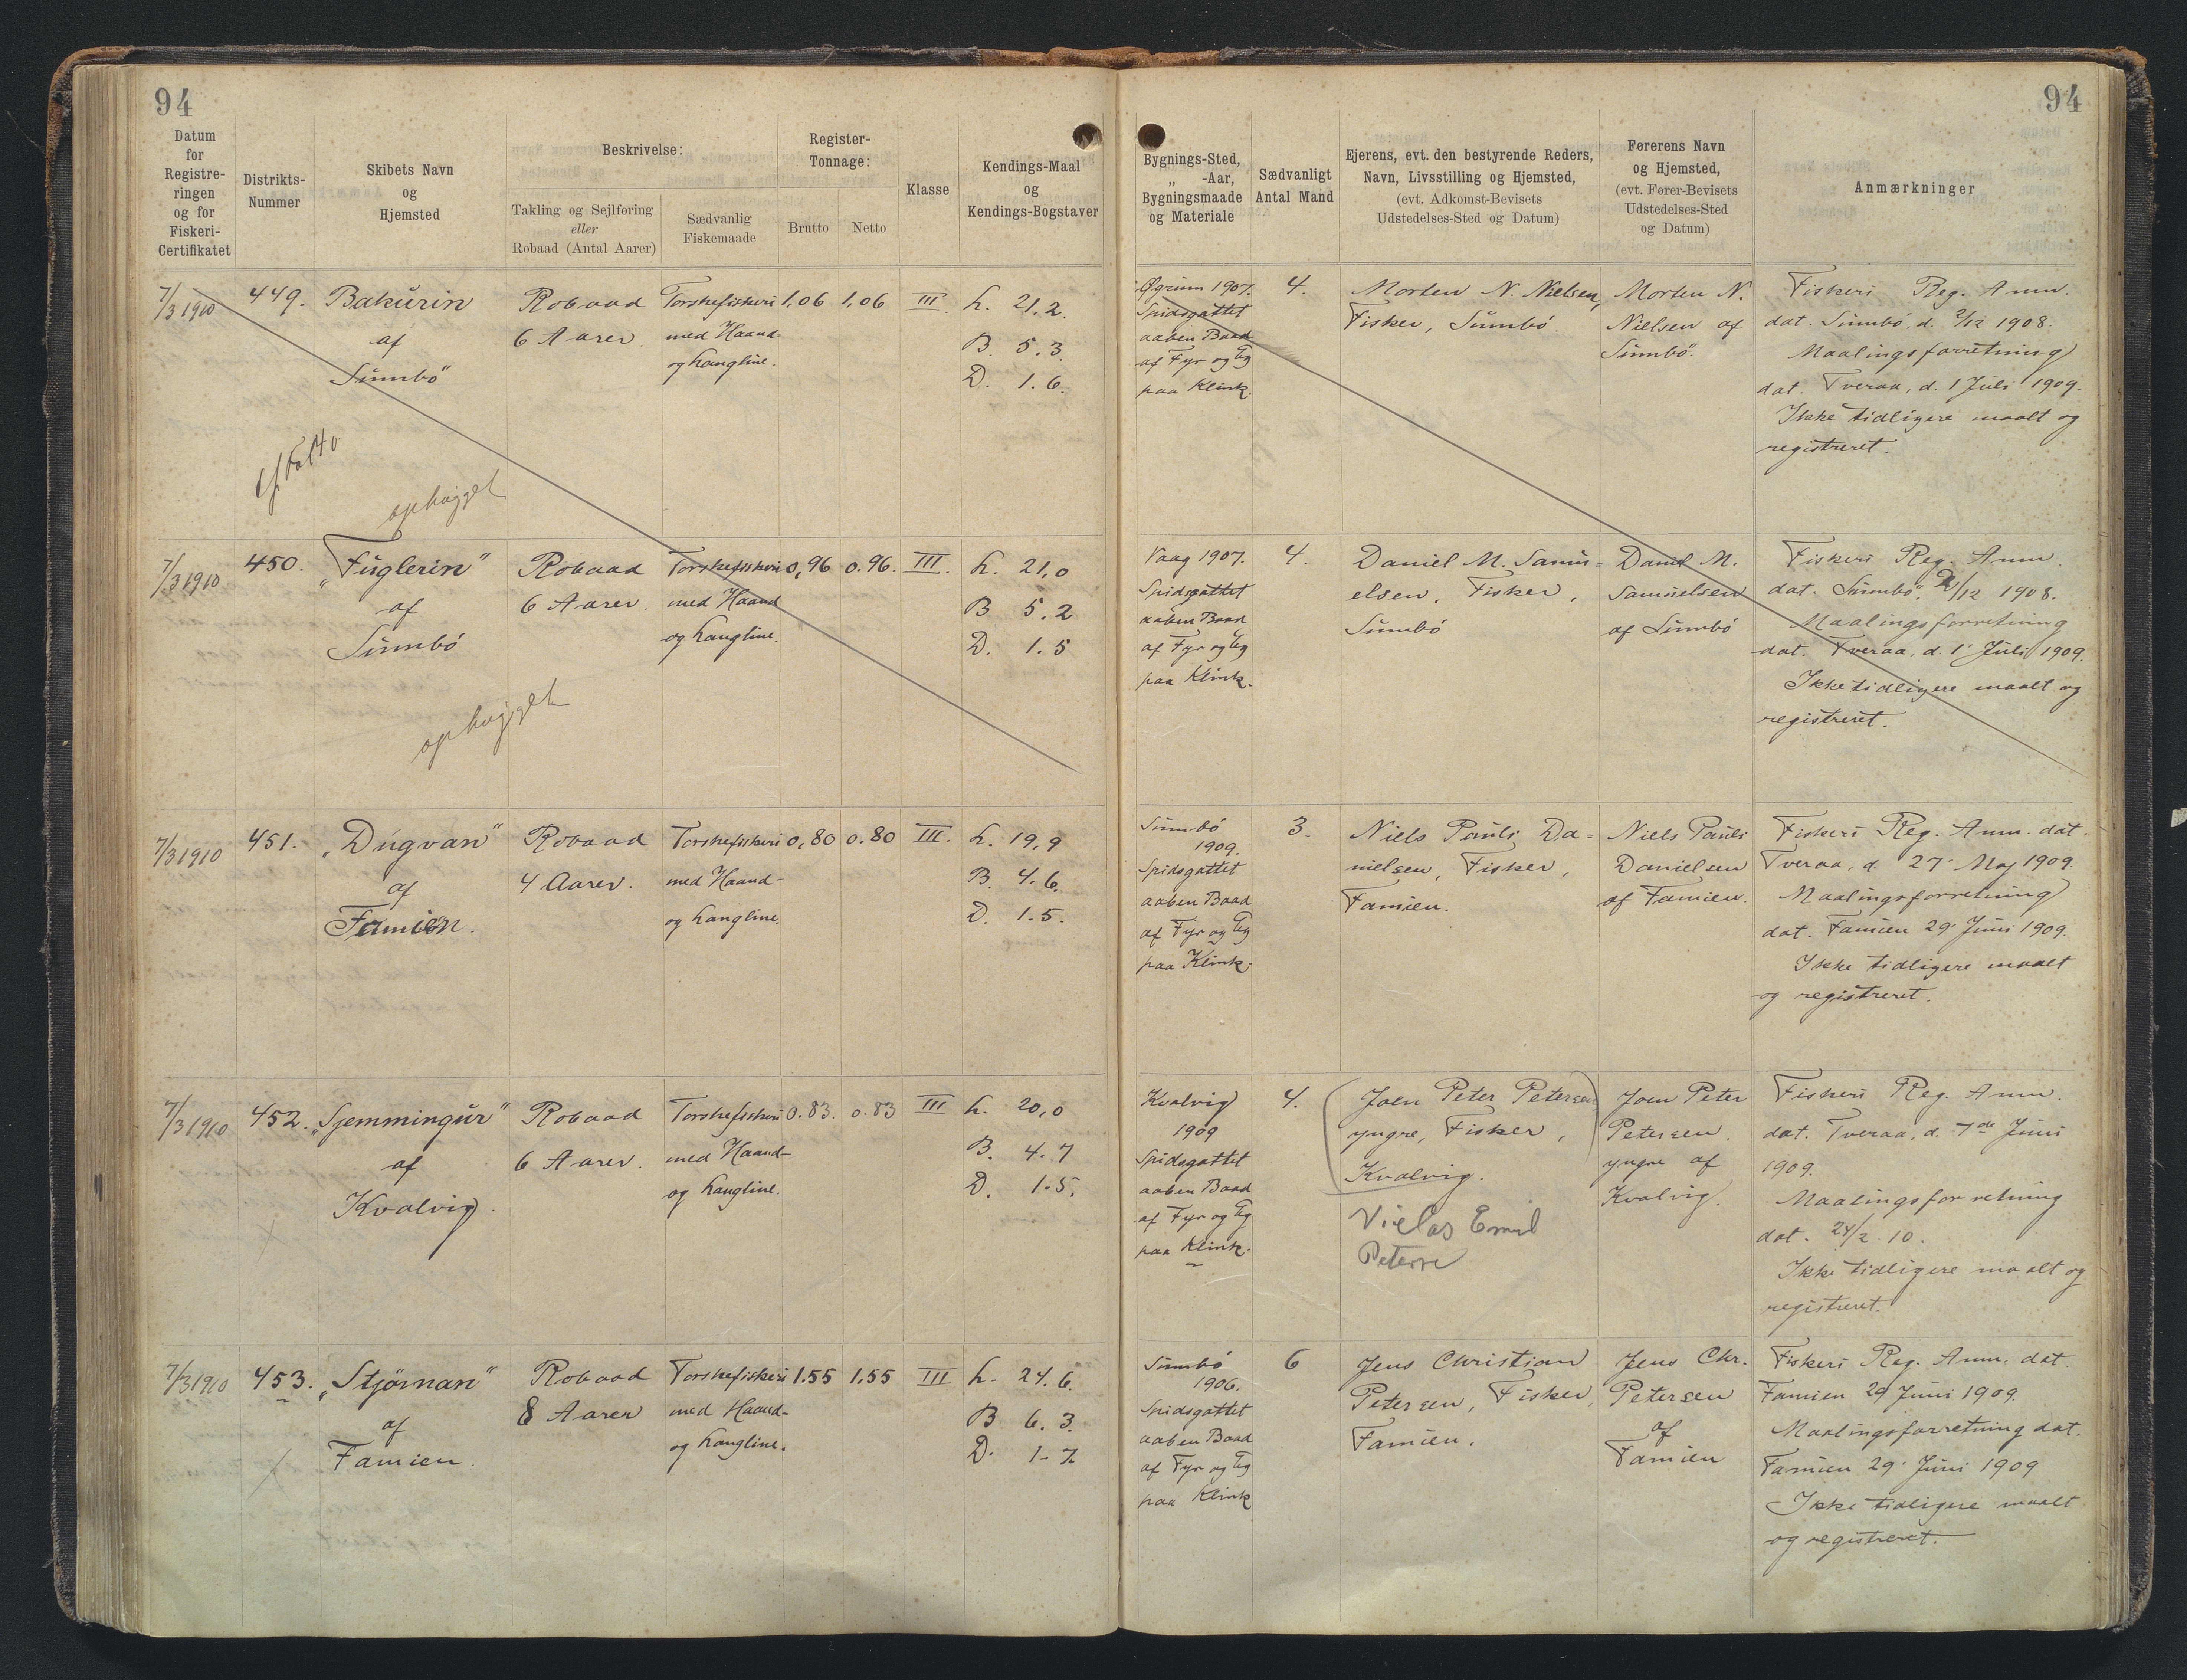 94
94
Datum
for
Registre-
ringen
og for
Fiskeri-
Certifikatet
Distrikts-
Nummer
Skibets Navn
og
Hjemsted
Beskrivelse:
Takling og Sejlføring
eller
Robaad (Antal Aarer)
Sædvanlig
Fiskemaade
Register-
Tonnage:
Brutto
Netto
Klasse
Kendings-Maal
og
Kendings-Bogstaver
Bygnings-Sted,
„ -Aar,
Bygningsmaade
og Materiale
Sædvanligt
Antal Mand
Ejerens, evt. den bestyrende Reders,
Navn, Livsstilling og Hjemsted,
(evt. Adkomst-Bevisets
Udstedelses-Sted og Datum)
Førerens Navn
og Hjemsted,
(evt. Fører-Bevisets
Udstedelses-Sted
og Datum)
Anmærkninger
7/3 1910
449.
Bakúrin
af
Súmbö"
ophugget
Robaad
6 Aarer.
Torskefiskeri
med Haand-
og Langline.
1,06
1,06
III.
L. 21,2.
B. 5.3.
D. 1.6.
Øgrum 1907.
Spidsgattet
aaben Baad
af Fyr og Eg
paa Klink.
4.
Morten N. Nielsen,
Fisker, Súmbö.
Morten N.
Nielsen af
Súmbö.
Fiskeri Reg. Anm.
dat. Súmbö, d. 2/12 1908.
Maalingsforretning
dat. Tveraa, d. 1 Juli 1909.
Ikke tidligere maalt og
registreret.
7/3 1910
450.
„Fúglerin"
af
Súmbö
ophugget
Robaad
6 Aarer.
Torskefiskeri
med Haand
og Langline.
0,96
0.96.
III.
L. 21,0
B 5.2
D. 1.5
Vaag 1907.
Spidsgattet
aaben Baad
af Fyr og Eg
paa Klink.
4.
Daniel M. Samu=
elsen, Fisker,
Súmbö
Daniel M.
Samuelsen
af Súmbö
Fiskeri Reg. Anm.
dat. Súmbö, 2/12 1908.
Maalingsforretning
dat. Tveraa, d. 1' Juli 1909.
Ikke tidligere maalt og
registreret.
7/3 1910
451.
„Dúgvan"
af
Famien.
Robaad
4 Aarer.
Torskefiskeri
med Haand-
og Langline.
0,80
0.80
III.
L. 19,9
B. 4.6.
D. 1.5.
Súmbö
1909.
Spidsgattet
aaben Baad
af Fyr og Eg
paa Klink.
3.
Niels Pauli Da=
nielsen, Fisker,
Famien.
Niels Pauli
Danielsen
af Famien.
Fiskeri Reg. Anm. dat.
Tveraa, d. 27' Maj 1909.
Maalingsforretning
dat. Famien 29' Juni 1909.
Ikke tidligere maalt
og registreret.
7/3 1910
452.
„Sjemmingúr"
af
Kvalvig.
Robaad
6 Aarer.
Torskefiskeri
med Haand-
og Langline.
0.83.
0.83
III
L. 20,0
B. 4.7
D. 1.5.
Kvalvig
1909
Spidsgattet
aaben Baad
af Fyr og Eg
paa Klink.
4.
Joen Peter Petersen
yngre, Fisker,
Kvalvig.
Joen Peter
Petersen,
yngre af
Kvalvig.
Fiskeri Reg. Anm.
dat. Tveraa, d. 7de Juni
1909.
Maalingsforretning
dat. 24/2. 10.
Ikke tidligere maalt og
registreret.
7/3 1910
453.
„Stjörnan"
af
Famien.
Robaad
8 Aarer
Torskefiskeri
med Haand-
og Langline.
1.55
1,55
III
L. 24.6.
B 6.3.
D. 1-7
Súmbö
1906.
Spidsgattet
aaben Baad
af Fyr og Eg
paa Klink
6
Jens Christian
Petersen, Fisker,
Famien.
Jens Chr.
Petersen
af
Famien
Fiskeri Reg. Anm. dat.
Famien 29 Juni 1909.
Maalingsforretning dat.
Famien 29' Juni 1909
Ikke tidligere maalt
og registreret.